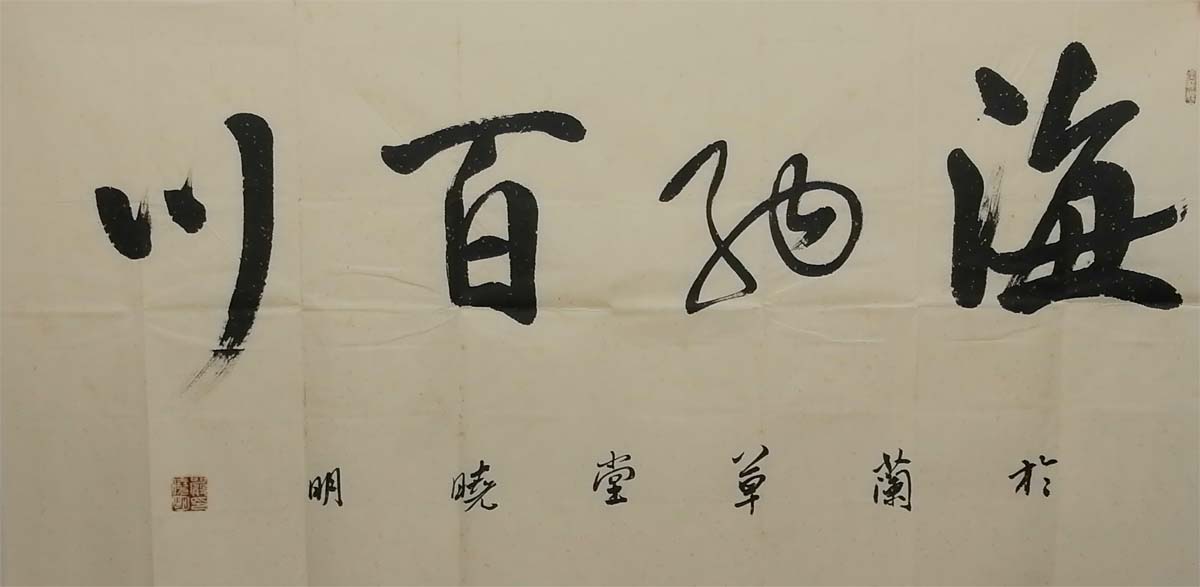 海納百川
於蘭草堂曉明